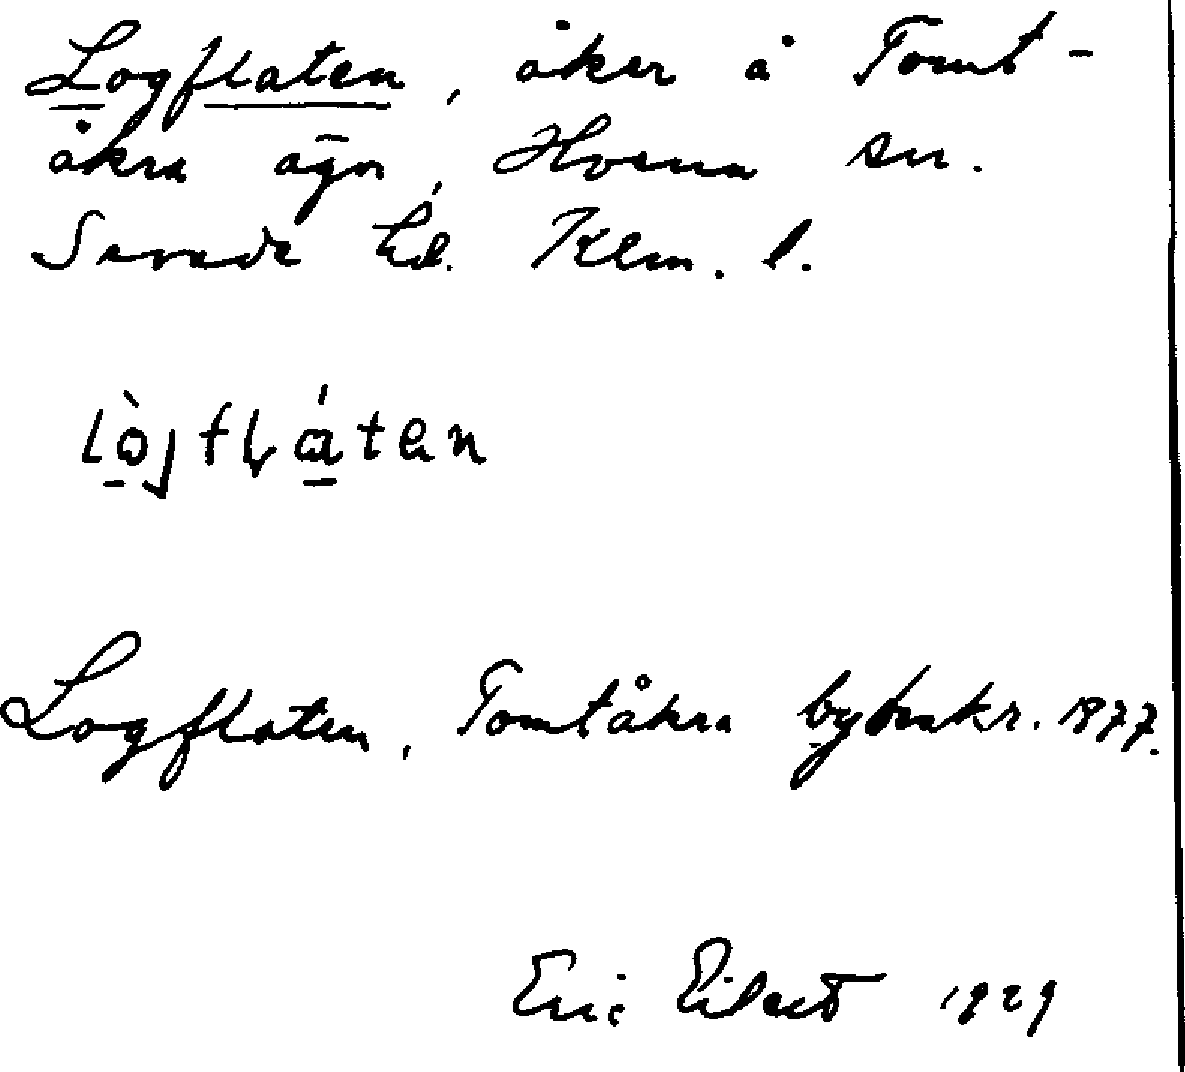 Logflaten, åker å Tomt-
åkra ägor, Horna sn.
Sevede hd. Klm. l.
Logflaten, Tomtåkra byhskr. 1877.
Eric Eilert 1929